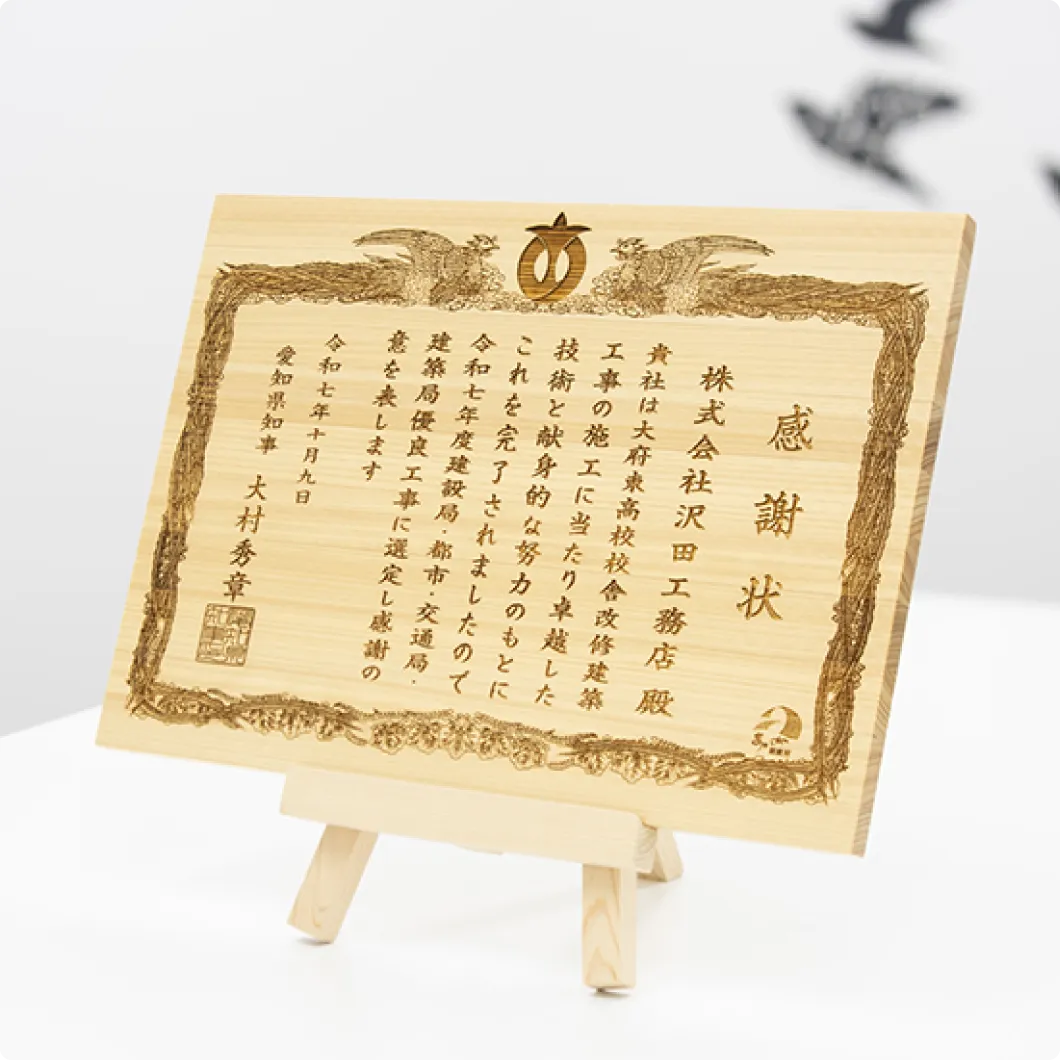 感謝状
株式会社沢田工務店 殿
貴社は大府東高校校舎改修建築
工事の施工に当たり卓越した
技術と献身的な努力のもとに
これを完了されましたので
令和七年度建設局・都市・交通局・
建築局優良工事に選定し感謝の
意を表します
令和七年十月九日
愛知県知事 大村秀章